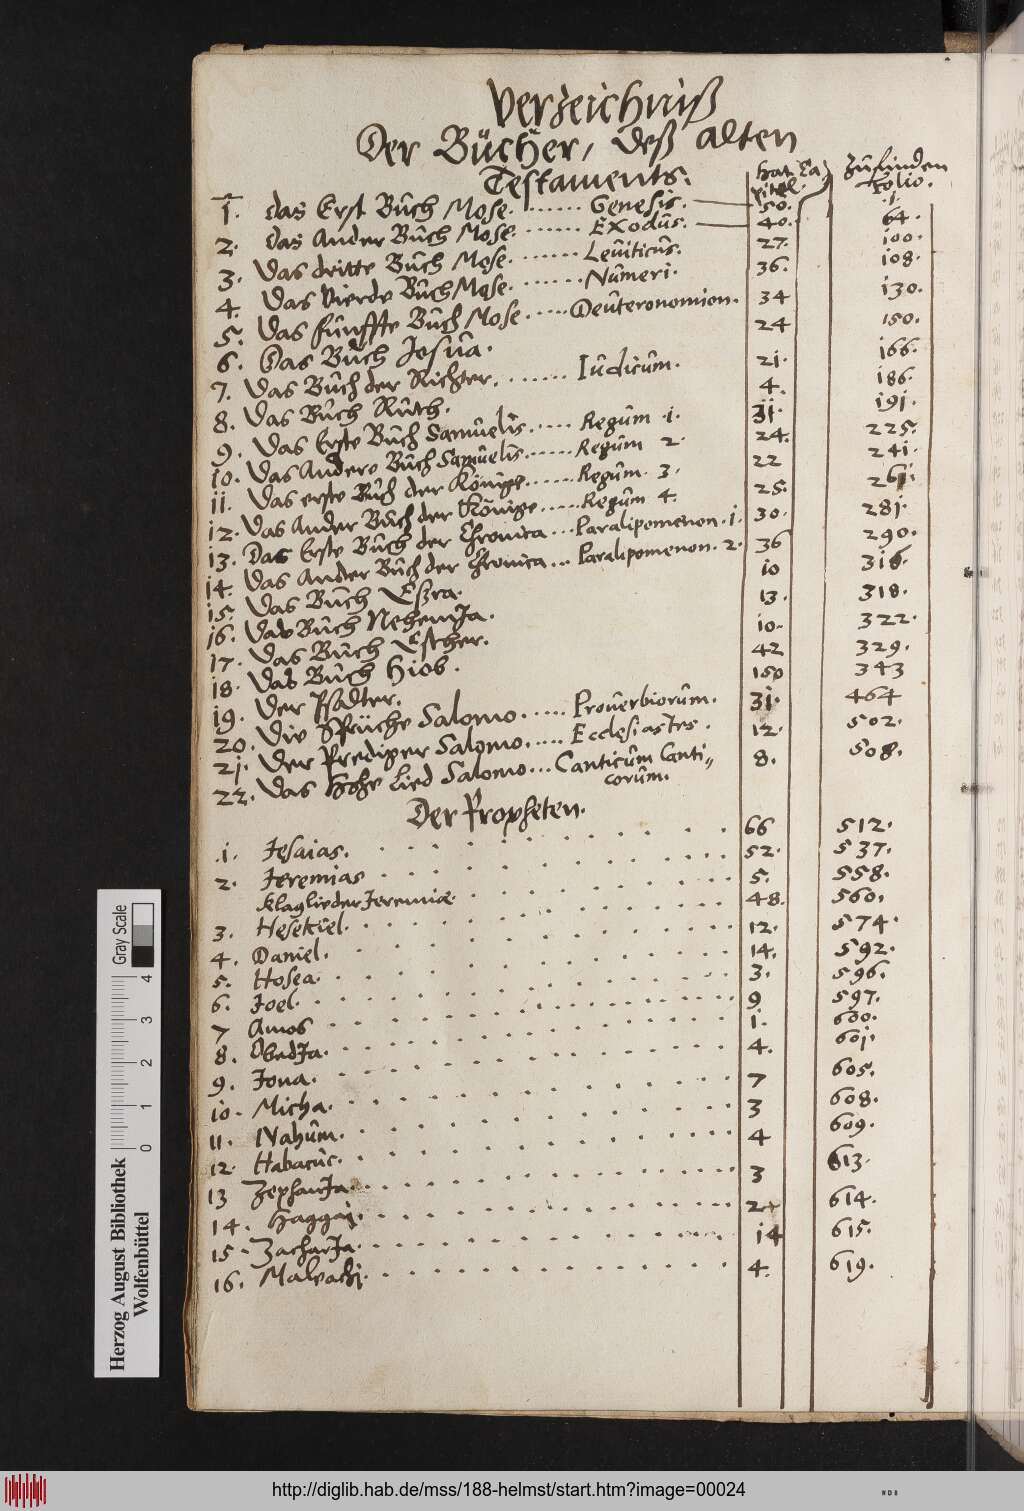 Verzeichniß
Der Bücher, deß alten
Testaments.
hat Ca, zufinden
pitel. folio.
1. das Erst Buch Mose. ...... Genesis. 50. 1.
2. das Ander Buch Mose. ...... Exodus. 40. 64.
3. das dritte Buch Mose. ....... Leuiticus. 27. 100.
4. das Vierde Buch Mose. ...... Numeri. 36. 108.
5. das fünffte Buch Mose. ..... Deuteronomion. 34 130.
6. Das Buch Josua. 24 150.
7. das Buch der Richter. ....... Iudicum. 21. 166.
8. das Buch Ruth. 4. 186.
9. das Erste Buch Samuelis. .... Regum 1. 31. 191.
10. das Andere Buch Samuelis. ...... Regum 2. 24. 225.
11. das erste Buch der Könige. ...... Regum 3. 22 241.
12. das Ander Buch der Könige. ..... Regum 4. 25. 261.
13. Das Erste Buch der Chronica ... Paralipomenon. 1. 30. 281.
14. das Ander Buch der Chronica ... Paralipomenon. 2. 36 290.
15. das Buch Eßra. 10 316.
16. das Buch NehemJa. 13. 318.
17. das Buch Esther. 10. 322.
18. das Buch Hiob. 42 329.
19. Der Psalter. 150 343
20. die Sprüche Salomo. ..... Prouerbiorum. 31. 464
21. der Prediger Salomo. .... Ecclesiastes. 12. 502.
22. das hohe Lied Salomo ... Canticum Canti,, 8. 508.
corum.
Der Propheten.
1. Jesaias. 66 512.
2. Jeremias 52. 537.
Klaglieder Jeremiæ. 5. 558.
3. Hesekiel. 48. 560.
4. Daniel. 12. 574.
5. Hosea. 14. 592.
6. Joel. 3. 596.
7 Amos 9 597.
8. ObedJa. 1. 600.
9. Jona. 4. 601.
10. Micha. 7 605.
11. Nahum. 3 608.
12. Habacuc. 4 609.
13 ZephanJa. 3 613.
14. Haggaj. 2 614.
15. ZacharJa. 14 615.
16. Maleachj. 4. 619.
Gray Scale
0 1 2 3 4
Herzog August Bibliothek
Wolfenbüttel
http://diglib.hab.de/mss/188-helmst/start.htm?image=00024